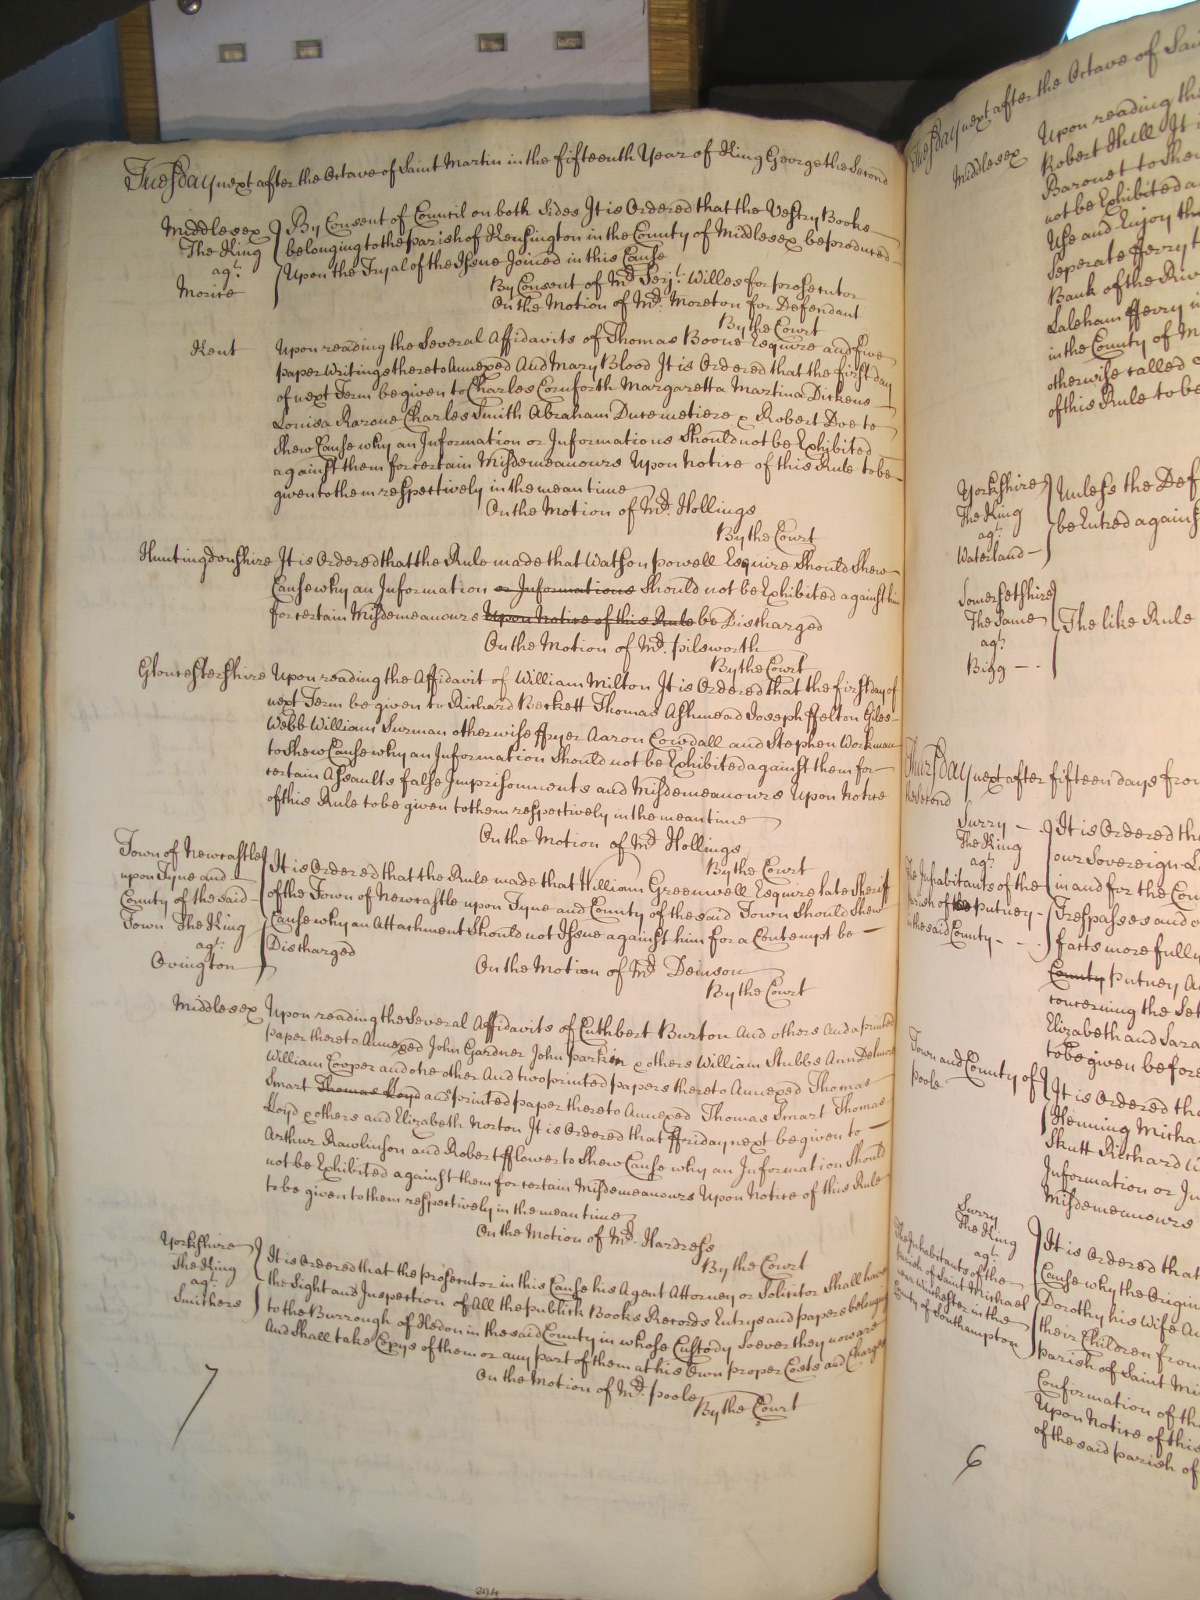 Tuesday next after the Octave of Saint Martin in the fifteenth Year of King George the Second
Middlesex
The King
agt.
Morice
By Consent of Council on both Sides It is Ordered that the Vestry Books
belonging to the parish of Kensington in the County of Middlesex be produced
Upon the Tryal of the Issue Joined in this Cause
By Consent of Mr. Serjt. Willes for prosecutor
On the Motion of Mr. Moreton for Defendant
By the Court
Kent
Upon reading the Several Affidavits of Thomas Boone Esquire and five
paper Writings thereto Annexed And Mary Blood It is Ordered that the first day
of next Term be given to Charles Cornforth Margaretta Martina Dickens
Louisa Charles Smith Abraham Ducemetiere & Robert Doe to
Shew Cause why an Information or Informations Should not be Exhibited
against them for certain Misdemeanours Upon Notice of this Rule to be
given to them respectively in the mean time
On the Motion of Mr. Hollings
By the Court
Huntingdonshire
It is Ordered that the Rule made that Watson powell Esquire Should Shew
Cause why an Information or Informations Should not be Exhibited against him
for certain Misdemeanours Upon Notice of this Rule be Discharged
On the Motion of Mr. pilsworth
By the Court
Gloucestershire
Upon reading the Affidavit of William Milton It is Ordered that the first day of
next Term be given to Richard Beckett Thomas Ashmead Joseph ffelton Giles
Webb William Surman otherwise ffryer Aaron Cowdall and Stephen Workman
to Shew Cause why an Information Should not be Exhibited against them for
certain Assaults false Imprisonments and Misdemeanours Upon Notice
of this Rule to be given to them respectively in the mean time
On the Motion of Mr. Hollings
By the Court
Town of Newcastle
upon Tyne and
County of the said
Town The King
agt.
Ovington
It is Ordered that the Rule made that William Greenwell Esquire late Sheriff
of the Town of Newcastle upon Tyne and County of the said Town Should Shew
Cause why an Attachment Should not Issue against him for a Contempt be
Discharged
On the Motion of Mr. Denison
By the Court
Middlesex
Upon reading the Several Affidavits of Cuthbert Burton And others And a printed
paper thereto Annexed John Gardner John parkin & others William Stubbs Ann Delmare
William Cooper and one other And two printed papers thereto Annexed Thomas
Smart Thomas Loyd and printed paper thereto Annexed Thomas Smart Thomas
Lloyd & others and Elizabeth Norton It is Ordered that ffriday next be given to
Arthur Rawlinson and Robert fflower to Shew Cause why an Information Should
not be Exhibited against them for certain Misdemeanours Upon Notice of this Rule
to be given to them respectively in the mean time
On the Motion of Mr. Hardress
By the Court
Yorkshire
The King
agt.
Smithers
It is Ordered that the prosecutor in this Cause his Agent Attorney or Solicitor Shall have
the Sight and Inspection of All the publick Books Records Entrys and papers belonging
to the Burrough of Hedon in the said County in whose Custody Soever they now are
And Shall take Copys of them or any part of them at his Own proper Costs and Charges
On the Motion of Mr. poole
By the Court
7
394
Tuesday next after the Octave of Sai
Middlesex
Upon reading the
Robert Shell It i
Baronet to Shew
not be Exhibited a
Use and Enjoy th
Seperate fferry
Bank of the Riv
Laleham fferry
in the County of M
otherwise called
of this Rule to be
Yorkshire
The King
agt.
Waterland
Unless the Def
be Entred against
Somersetshire
The Same
agt.
Bigg
The like Rule
Thursday next after fifteen days from
the second
Surry
The King
agt.
The Inhabitants of the
parish of putney
in the said County
It is Ordered tha
our Sovereign L
in and for the Con
Trespasses and o
facts more fully
County putney A
concerning the Set
Elizabeth and Sara
to be given before
Town and County of
poole
It is Ordered tha
Henning Micha
Skutt Richard W
Information or In
Misdemeanours
Surry
The King
agt.
The Inhabitants of the
parish of Saint Michael
near Winchester in the
County of Southampton
It is Ordered that
Cause why the Origin
Dorothy his Wife A
their Children from
parish of Saint Mi
Confirmation of th
Upon Notice of this
of the said parish of
6